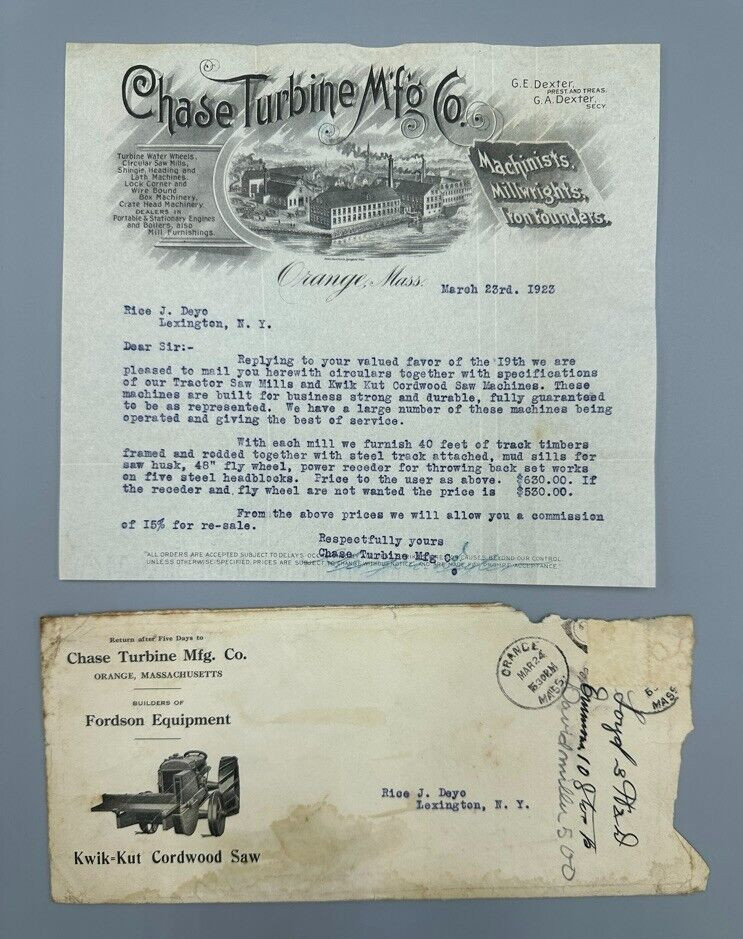 Chase Turbine M'f'g Co.
G.E. Dexter,
PREST. AND TREAS.
G.A. Dexter,
SECY.
Turbine Water Wheels,
Circular Saw Mills,
Shingle, Heading and
Lath Machines.
Lock Corner and
Wire Bound
Box Machinery.
Crate Head Machinery.
DEALERS IN
Portable & Stationary Engines
and Boilers, also
Mill Furnishings.
Machinists,
Millwrights,
Iron Founders.
Orange, Mass.
March 23rd. 1923
Rice J. Deyo
Lexington, N. Y.
Dear Sir:-
Replying to your valued favor of the 19th we are
pleased to mail you herewith circulars together with specifications
of our Tractor Saw Mills and Kwik Kut Cordwood Saw Machines. These
machines are built for business strong and durable, fully guaranteed
to be as represented. We have a large number of these machines being
operated and giving the best of service.
With each mill we furnish 40 feet of track timbers
framed and rodded together with steel track attached, mud sills for
saw husk, 48" fly wheel, power receder for throwing back set works
on five steel headblocks. Price to the user as above. $630.00. If
the receder and fly wheel are not wanted the price is $530.00.
From the above prices we will allow you a commission
of 15% for re-sale.
Respectfully yours
Chase Turbine Mfg Co.
ALL ORDERS ARE ACCEPTED SUBJECT TO DELAYS, CAUSES BEYOND OUR CONTROL
UNLESS OTHERWISE SPECIFIED, PRICES ARE SUBJECT TO CHANGE WITHOUT NOTICE, AND ARE MADE FOR PROMPT ACCEPTANCE
Return after Five Days to
Chase Turbine Mfg. Co.
ORANGE, MASSACHUSETTS
BUILDERS OF
Fordson Equipment
Kwik-Kut Cordwood Saw
ORANGE
MAR 24
530PM
MASS.
MASS
Rice J. Deyo
Lexington, N. Y.